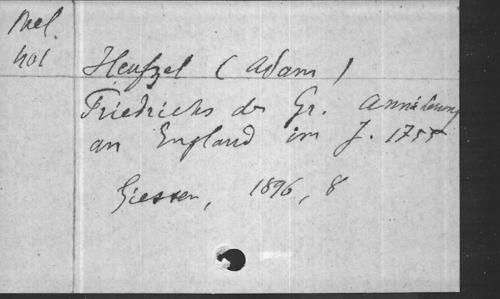 Mel.
401
Heußel (Adam)
Friedrichs des Gr. Annäherung
an England im J. 1755
Giessen, 1896, 8